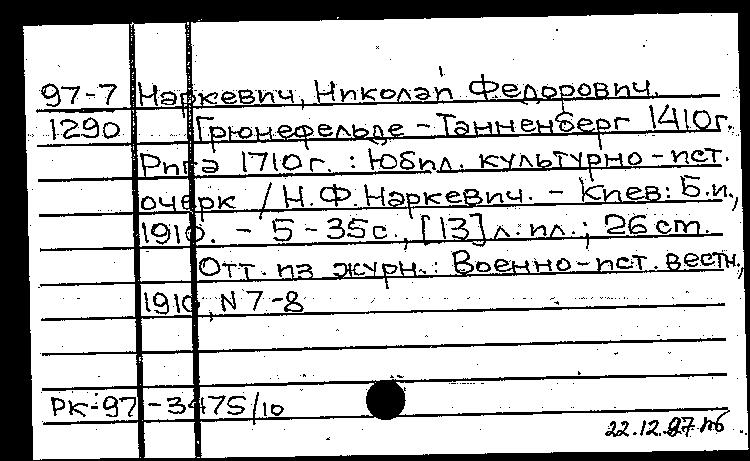 97-7 Наркевич, Николай Федорович.
1290 Грюнефельде - Танненберг 1410г.
Рига 1710г. : Юбил. культурно-ист.
очерк / Н.Ф. Наркевич. - Киев: Б.и.,
1910. - 5-35с., [13] л. ил.; 26 ст.
Отт. из журн.: Военно-ист. вестн.,
1910, N 7-8
РК-97-3475/10
22.12.97